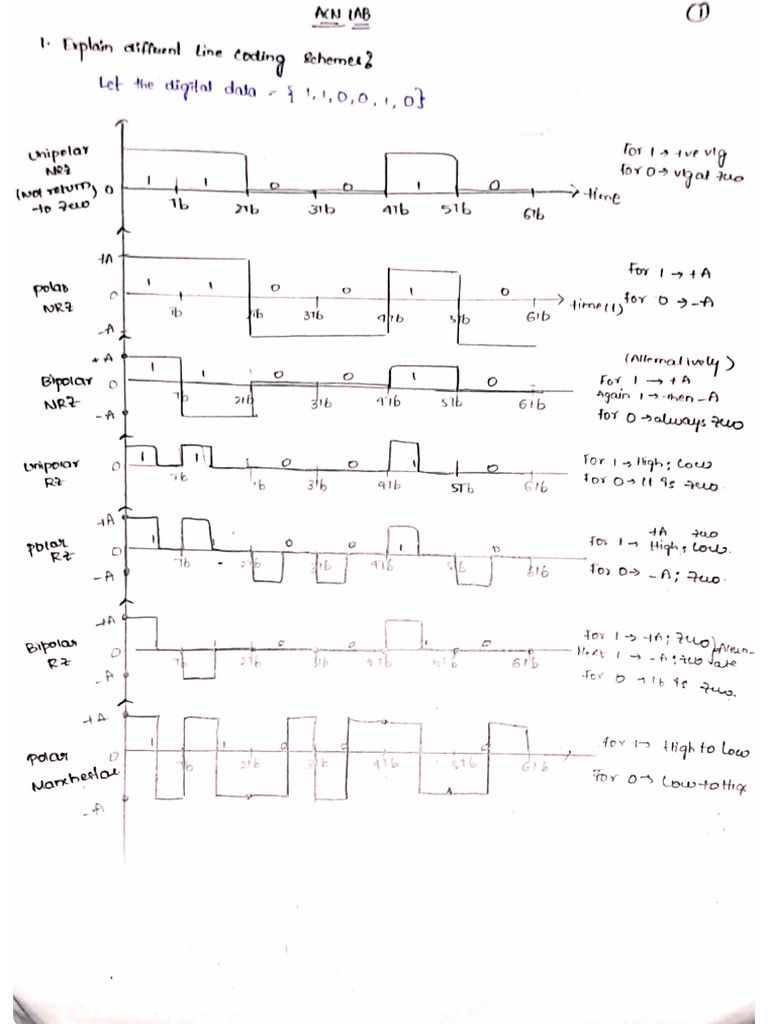 ACN LAB
1
1. Explain different line coding schemes?
Let the digital data = { 1, 1, 0, 0, 1, 0}
Unipolar
NRZ
(Not return)
-to zero
0
1 1 0 0 1 0
Tb 2Tb 3Tb 4Tb 5Tb 6Tb
→ time
For 1 → +ve vlg
for 0 → vlg at zero
Polar
NRZ
+A
0
-A
1 1 0 0 1 0
Tb Tb 3Tb 4Tb 5Tb 6Tb
time(t)
For 1 → +A
for 0 → -A
Bipolar
NRZ
+A
0
-A
1 1 0 0 1 0
Tb 2Tb 3Tb 4Tb 5Tb 6Tb
(Alternatively)
For 1 → +A
Again 1 → then -A
for 0 → always zero
Unipolar
RZ
0
1 1 0 0 1 0
Tb Tb 3Tb 4Tb 5Tb 6Tb
For 1 → High; Low
for 0 → It is zero.
Polar
RZ
+A
0
-A
1 0 0 1 0
Tb 2Tb 3Tb 4Tb 5Tb 6Tb
+A zero
for 1 → High; Low.
for 0 → -A; zero.
Bipolar
RZ
+A
0
-A
0 0 0
Tb 2Tb 3Tb 4Tb 5Tb 6Tb
for 1 → +A; zero
Next 1 → -A; zero
for 0 → It is zero.
Polar
Manchestar
+A
0
-A
1 1 0 0 0
Tb 2Tb 3Tb 4Tb 5Tb 6Tb
for 1 → High to Low
For 0 → Low to High